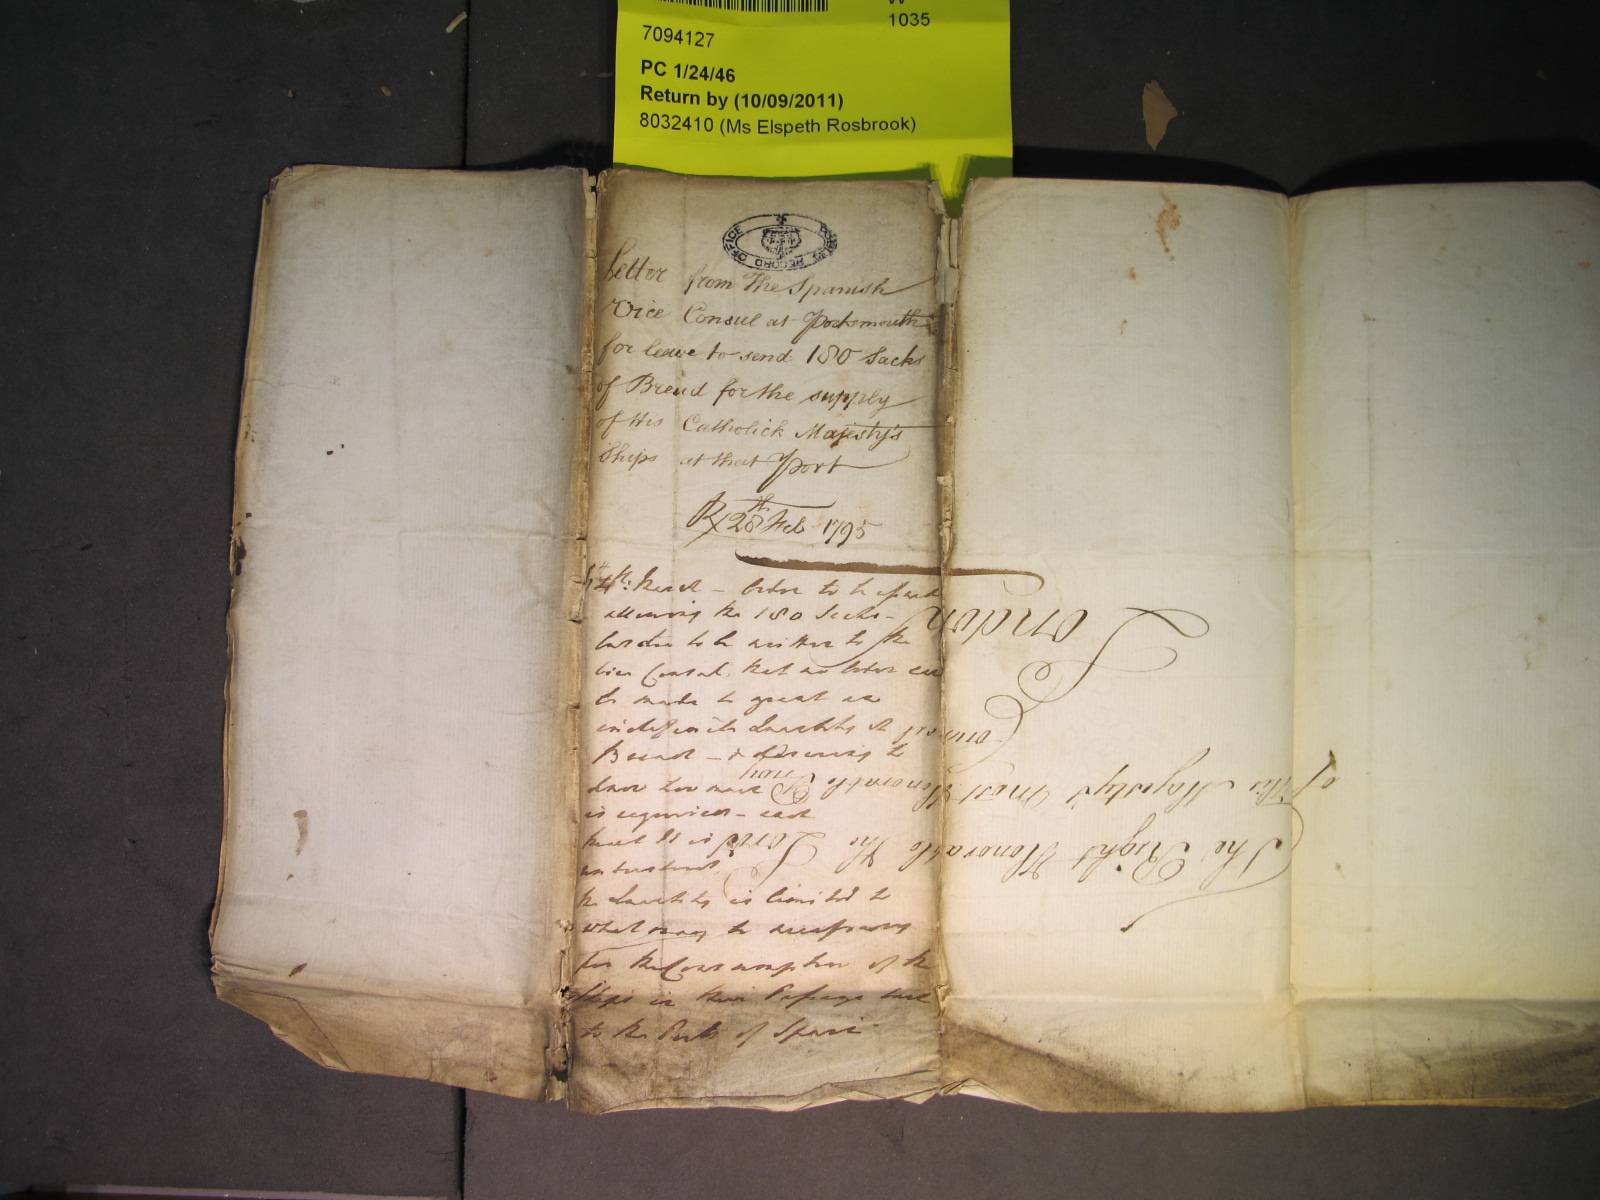 1035
7094127
PC 1/24/46
Return by (10/09/2011)
8032410 (Ms Elspeth Rosbrook)
PUBLIC RECORD OFFICE
Letter from The Spanish
Vice Consul at Portsmouth
for leave to send 180 Sacks
of Bread for the supply
of His Catholick Majesty's
Ships at that Port
28th Feb 1795
4th March - Order to be
allowing the 180 Sacks -
to be written to the
Vice Consul, that no Order can
be made to grant an
indefinite Quantity of
Bread - & desiring to
know how much
is required - and
that it is
understood
the Quantity is limited to
what may be necessary
for the Consumption of the
Ships in their Passage back
to the Ports of Spain
The Right Honorable The Lords
of His Majesty's Most Honorable Privy
Council
London